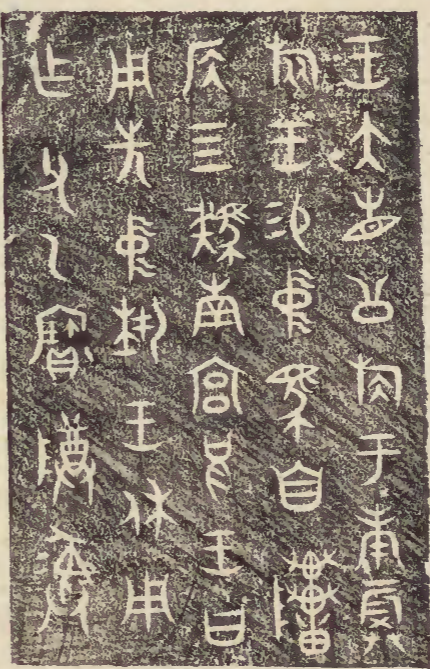 王大省公族于庚𠨷
旅王易中馬自
侯四南宮兄王曰
用先中埶王休用
乍父乙寶䵼彝